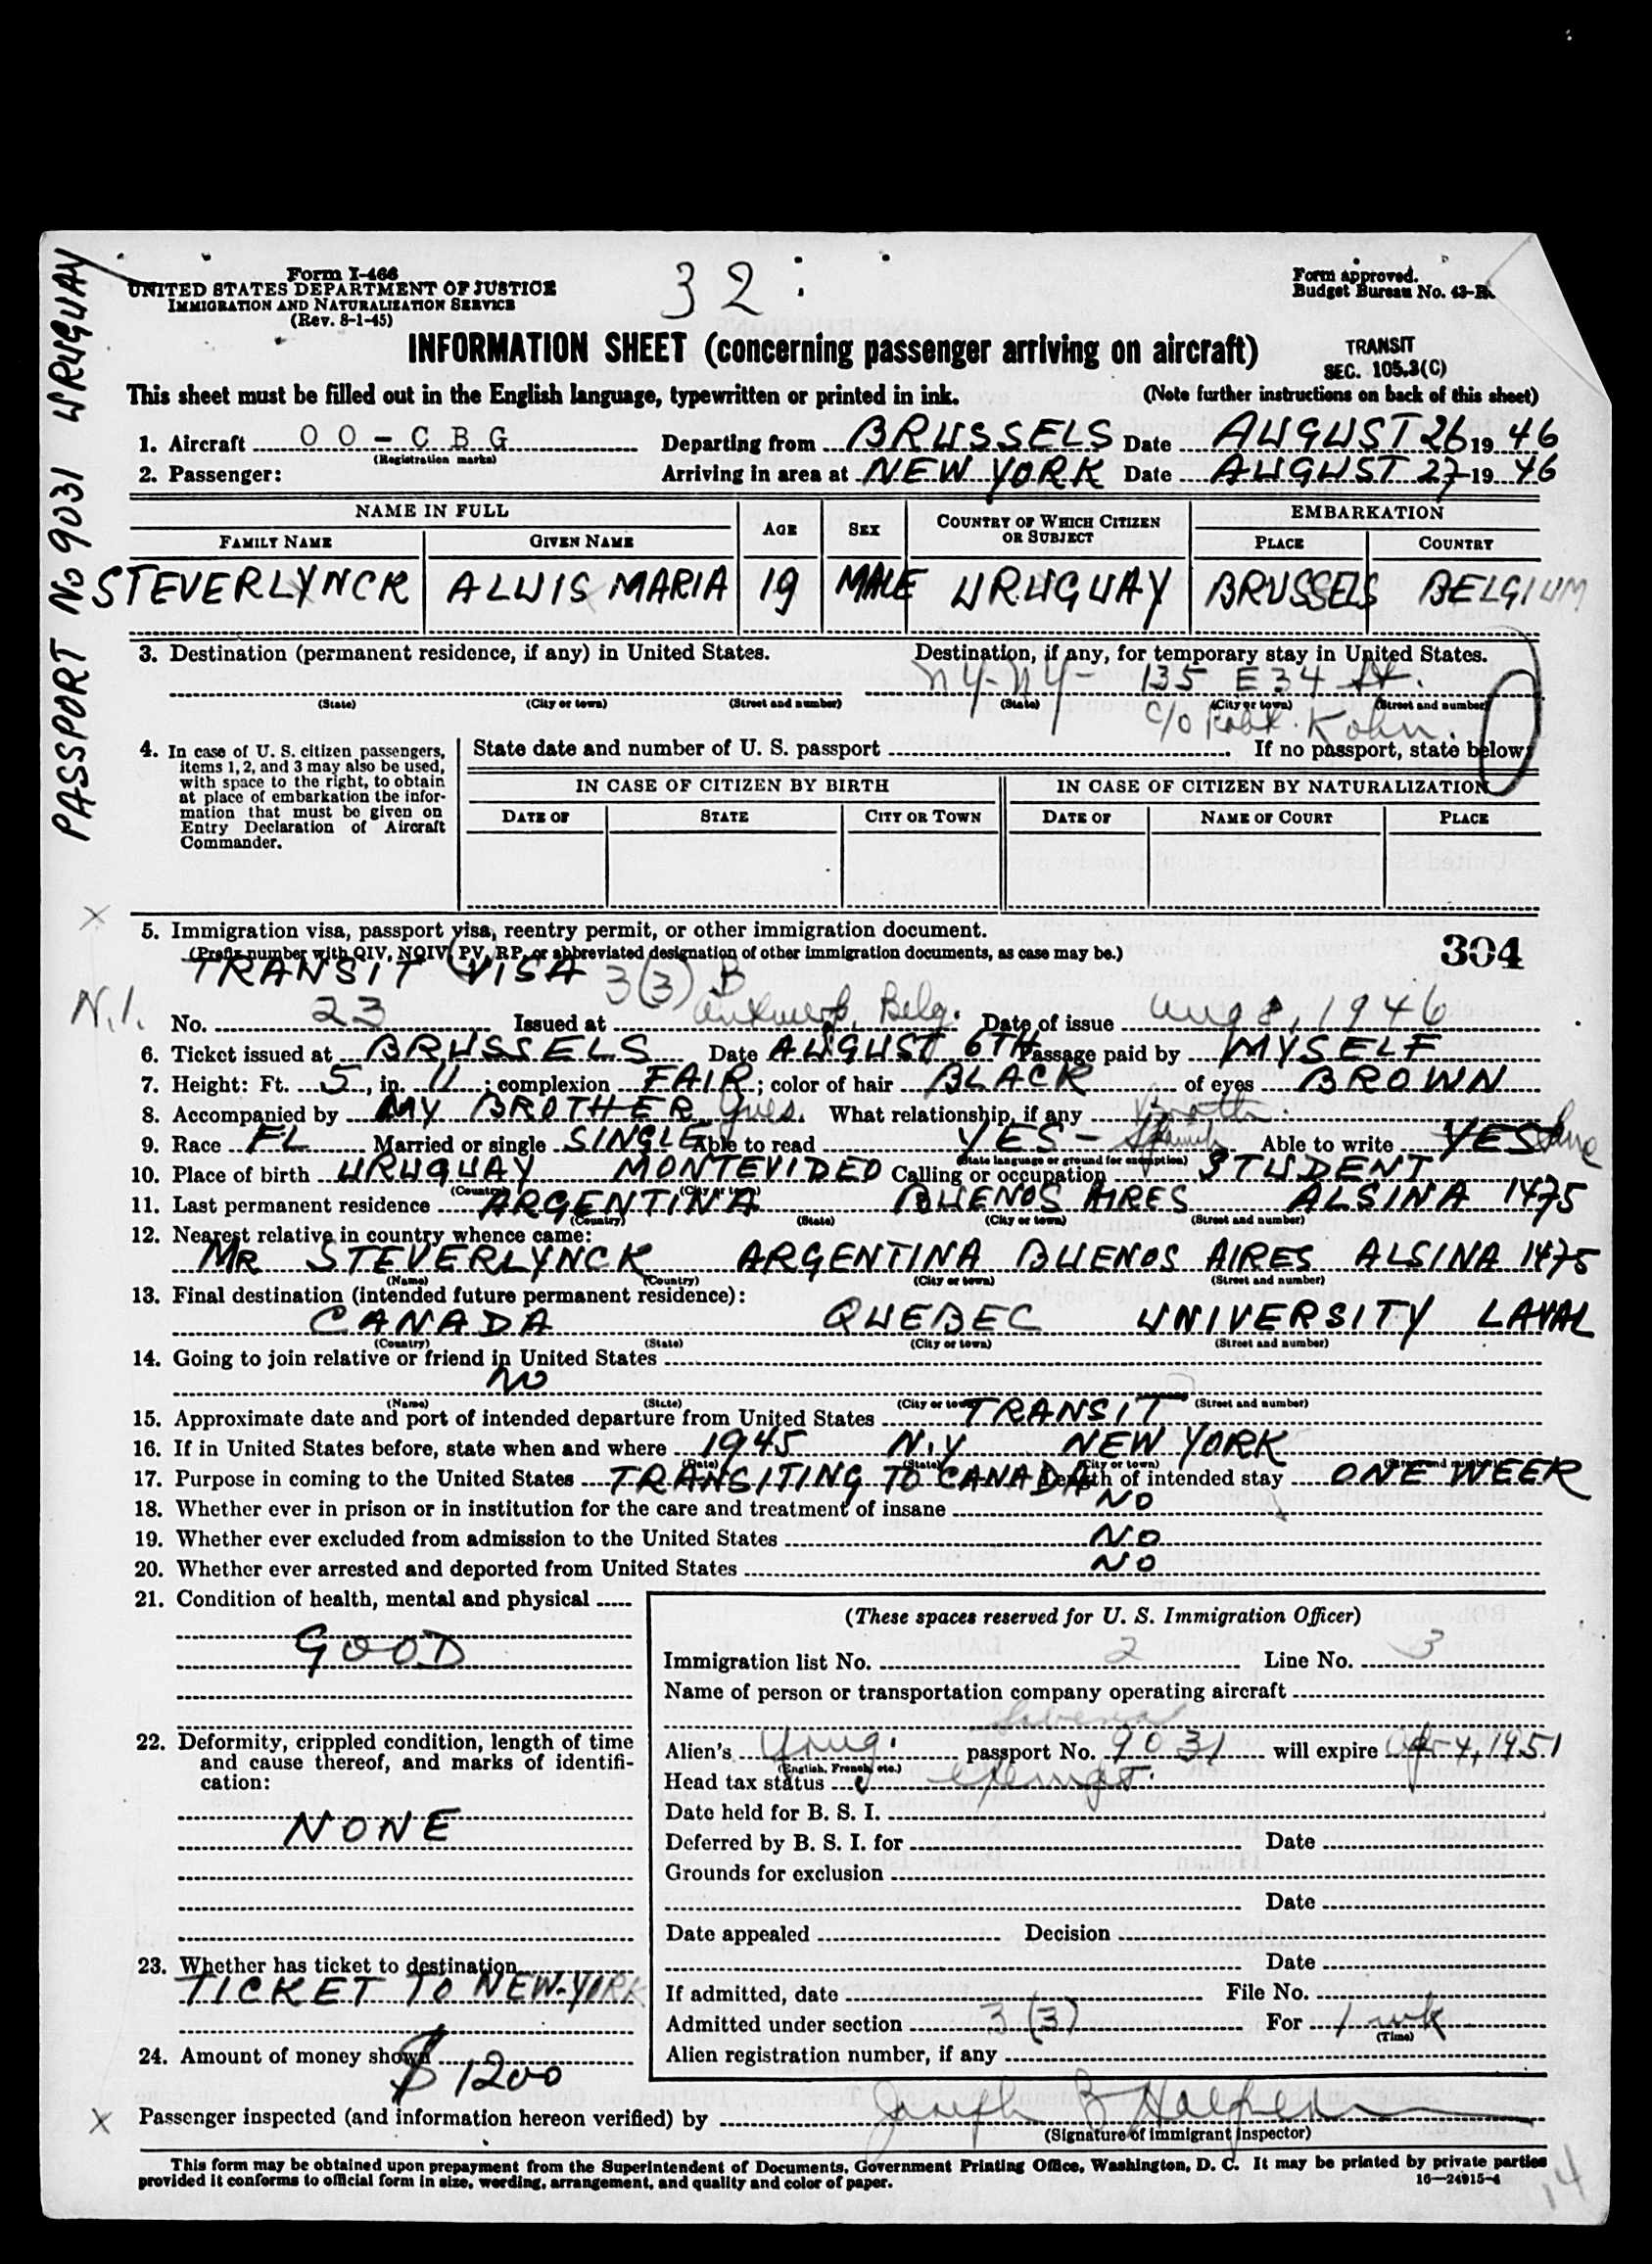 32
Form I-466
UNITED STATES DEPARTMENT OF JUSTICE
IMMIGRATION AND NATURALIZATION SERVICE
(Rev. 8-1-45)
Form approved.
Budget Bureau No. 43-R
INFORMATION SHEET (concerning passenger arriving on aircraft)
TRANSIT
SEC. 105.3(C)
This sheet must be filled out in the English language, typewritten or printed in ink. (Note further instructions on back of this sheet)
PASSPORT No 9031 URUGUAY
1. Aircraft OO-CBG Departing from BRUSSELS Date AUGUST 26 1946
(Registration marks)
2. Passenger: Arriving in area at NEW YORK Date AUGUST 27 1946
NAME IN FULL AGE SEX COUNTRY OF WHICH CITIZEN OR SUBJECT EMBARKATION
FAMILY NAME GIVEN NAME PLACE COUNTRY
STEVERLYNCK ALUIS MARIA 19 MALE URUGUAY BRUSSELS BELGIUM
3. Destination (permanent residence, if any) in United States. Destination, if any, for temporary stay in United States.
NY-NY- 135 E 34 St.
(State) (City or town) (Street and number) (State) (City or town) (Street and number)
c/o Robt. Kohn.
4. In case of U. S. citizen passengers, items 1, 2, and 3 may also be used, with space to the right, to obtain at place of embarkation the information that must be given on Entry Declaration of Aircraft Commander.
State date and number of U. S. passport If no passport, state below:
IN CASE OF CITIZEN BY BIRTH IN CASE OF CITIZEN BY NATURALIZATION
DATE OF STATE CITY OR TOWN DATE OF NAME OF COURT PLACE
5. Immigration visa, passport visa, reentry permit, or other immigration document.
(Prefix number with QIV, NQIV, PV, RP, or abbreviated designation of other immigration documents, as case may be.)
304
TRANSIT VISA 3(3) B
N.I. No. 23 Issued at Antwerp, Belg. Date of issue Aug 8, 1946
6. Ticket issued at BRUSSELS Date AUGUST 6TH Passage paid by MYSELF
7. Height: Ft. 5, in. 11; complexion FAIR; color of hair BLACK of eyes BROWN
8. Accompanied by MY BROTHER Yves. What relationship, if any Broth.
9. Race FL Married or single SINGLE Able to read YES - Spanish Able to write YES Same
(State language or ground for exemption)
10. Place of birth URUGUAY MONTEVIDEO Calling or occupation STUDENT
(Country) (City or town)
11. Last permanent residence ARGENTINA BUENOS AIRES ALSINA 1475
(Country) (State) (City or town) (Street and number)
12. Nearest relative in country whence came:
MR STEVERLYNCK ARGENTINA BUENOS AIRES ALSINA 1475
(Name) (Country) (City or town) (Street and number)
13. Final destination (intended future permanent residence):
CANADA QUEBEC UNIVERSITY LAVAL
(Country) (State) (City or town) (Street and number)
14. Going to join relative or friend in United States
NO
(Name) (State) (City or town) (Street and number)
15. Approximate date and port of intended departure from United States TRANSIT
16. If in United States before, state when and where 1945 N.Y NEW YORK
(Date) (State) (City or town) (Street and number)
17. Purpose in coming to the United States TRANSITING TO CANADA Length of intended stay ONE WEEK
18. Whether ever in prison or in institution for the care and treatment of insane NO
19. Whether ever excluded from admission to the United States NO
20. Whether ever arrested and deported from United States NO
21. Condition of health, mental and physical
GOOD
22. Deformity, crippled condition, length of time and cause thereof, and marks of identification:
NONE
23. Whether has ticket to destination
TICKET TO NEW-YORK
24. Amount of money shown $ 1200
(These spaces reserved for U. S. Immigration Officer)
Immigration list No. 2 Line No. 3
Name of person or transportation company operating aircraft
Sabena
Alien's Urug. passport No. 9031 will expire Apr 4, 1951
(English, French, etc.)
Head tax status exempt.
Date held for B. S. I.
Deferred by B. S. I. for Date
Grounds for exclusion
Date
Date appealed Decision
Date
If admitted, date File No.
Admitted under section 3(3) For 1 wk
(Time)
Alien registration number, if any
Passenger inspected (and information hereon verified) by Joseph B Halpern
(Signature of Immigrant Inspector)
This form may be obtained upon prepayment from the Superintendent of Documents, Government Printing Office, Washington, D. C. It may be printed by private parties
provided it conforms to official form in size, wording, arrangement, and quality and color of paper. 16—24915-4
14